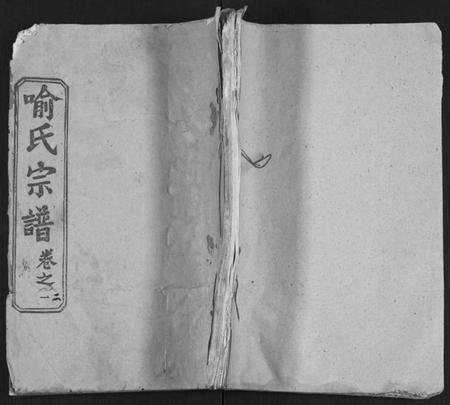 喻氏宗譜
卷之二一